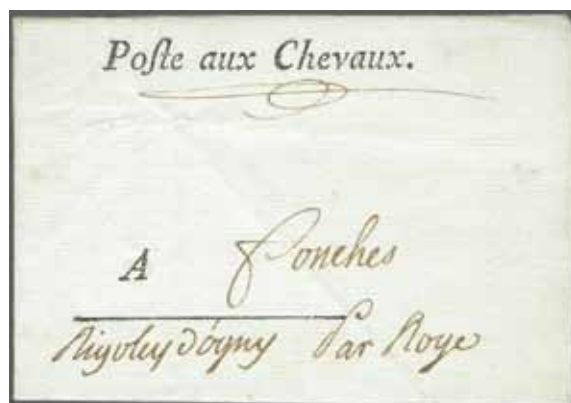 Poſte aux Chevaux.
A fonches
Rigoley d'ogny Par Roye